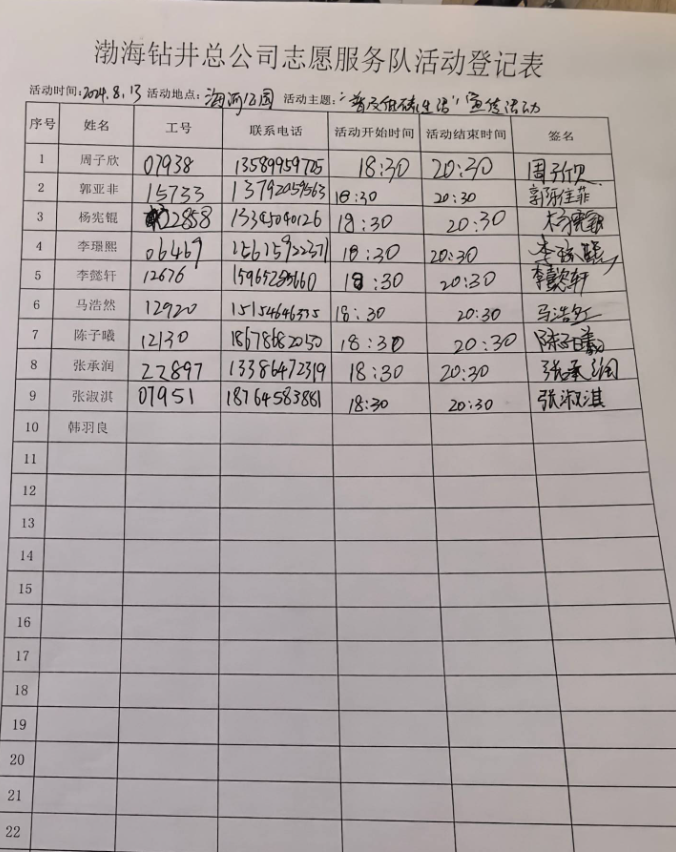 渤海钻井总公司志愿服务队活动登记表
活动时间:2024.8.13 活动地点:海河公园 活动主题:"普及低碳生活"宣传活动
序号 姓名 工号 联系电话 活动开始时间 活动结束时间 签名
1 周子欣 07938 13589959725 18:30 20:30 周子欣
2 郭亚非 15733 13792059563 18:30 20:30
3 杨宪锟 02858 13345040126 18:30 20:30 杨宪锟
4 李璟熙 06469 15615922371 18:30 20:30 李璟熙
5 李懿轩 12676 18:30 20:30 李懿轩
6 马浩然 12920 15154646575 18:30 20:30 马浩然
7 陈子曦 12130 18678682050 18:30 20:30 陈子曦
8 张承润 22897 13386472319 18:30 20:30 张承润
9 张淑淇 07951 18764583881 18:30 20:30 张淑淇
10 韩羽良
11
12
13
14
15
16
17
18
19
20
21
22